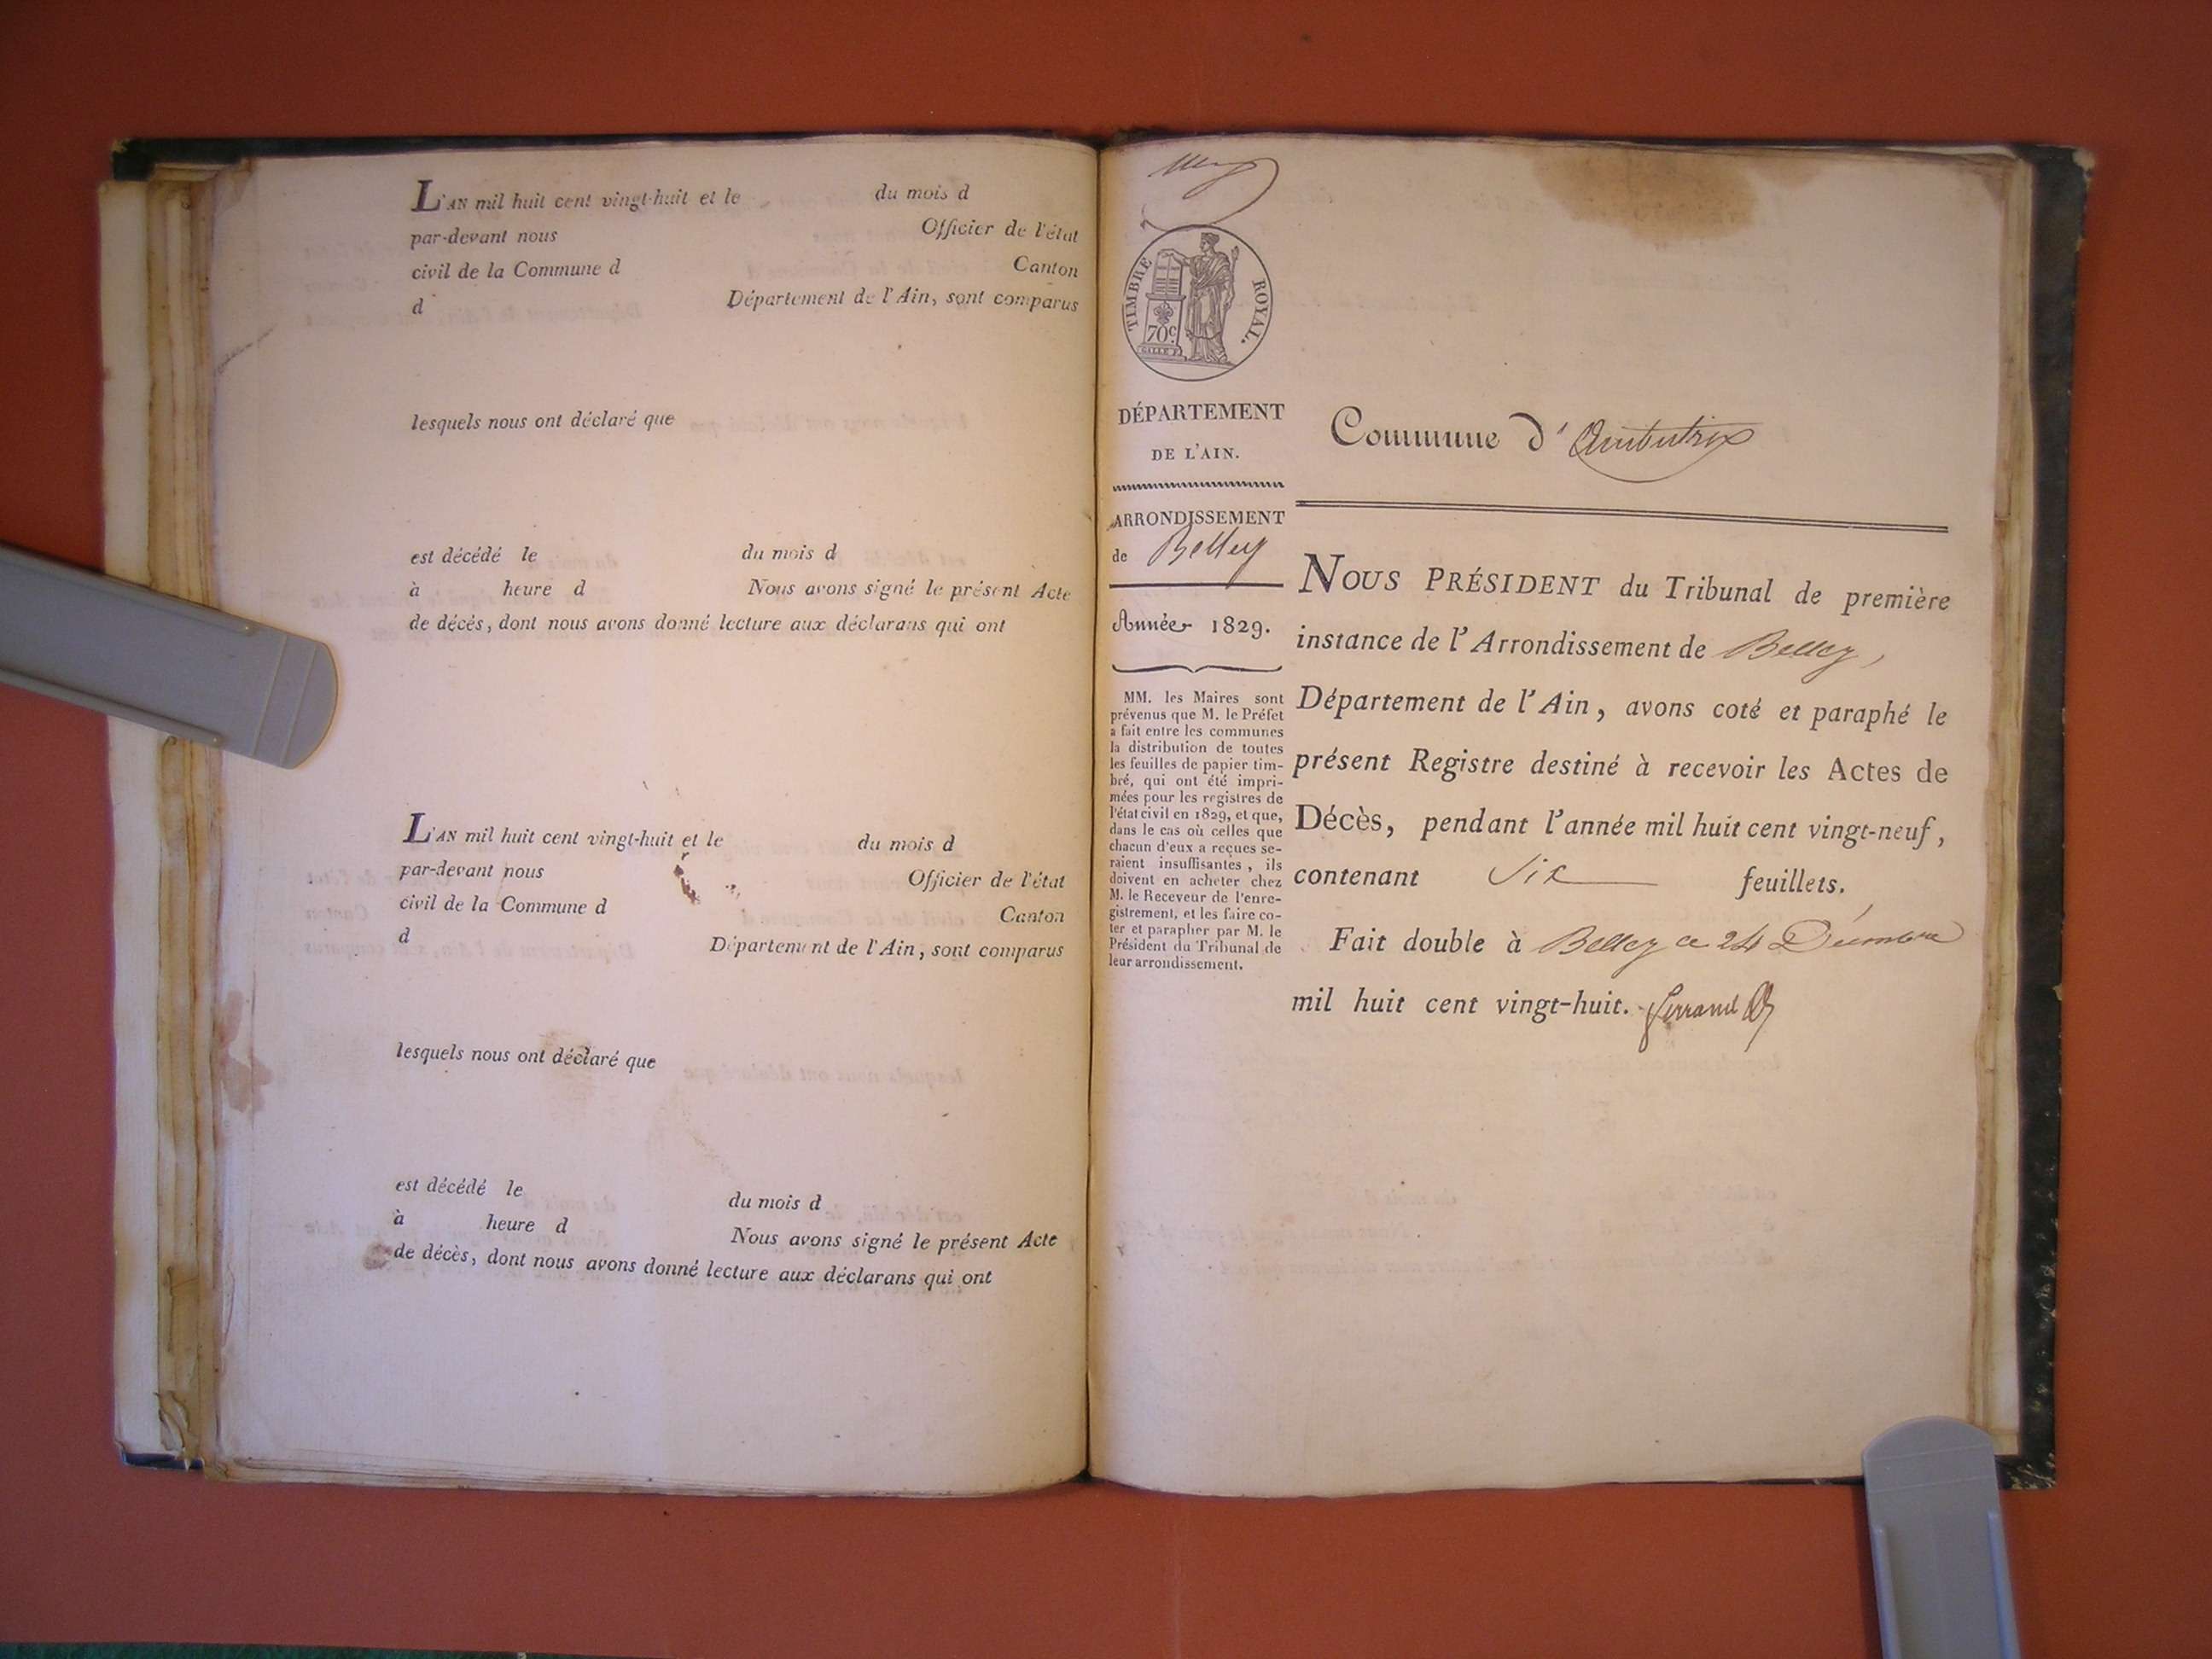 L'AN mil huit cent vingt-huit et le du mois d
par-devant nous Officier de l'état
civil de la Commune d Canton
d Département de l'Ain, sont comparus
lesquels nous ont déclaré que
est décédé le du mois d
à heure d Nous avons signé le présent Acte
de décés, dont nous avons donné lecture aux déclarans qui ont
L'AN mil huit cent vingt-huit et le du mois d
par-devant nous Officier de l'état
civil de la Commune d Canton
d Département de l'Ain, sont comparus
lesquels nous ont déclaré que
est décédé le du mois d
à heure d Nous avons signé le présent Acte
de décès, dont nous avons donné lecture aux déclarans qui ont
TIMBRE ROYAL.
70c
DÉPARTEMENT
DE L'AIN.
ARRONDISSEMENT
de Belley
Année 1829.
MM. les Maires sont
prévenus que M. le Préfet
a fait entre les communes
la distribution de toutes
les feuilles de papier tim-
bré, qui ont été impri-
mées pour les registres de
l'état civil en 1829, et que,
dans le cas où celles que
chacun d'eux a reçues se-
raient insuffisantes, ils
doivent en acheter chez
M. le Receveur de l'enre-
gistrement, et les faire co-
ter et parapher par M. le
Président du Tribunal de
leur arrondissement.
Commune d'Ambutrix
NOUS PRÉSIDENT du Tribunal de première
instance de l'Arrondissement de Belley,
Département de l'Ain, avons coté et paraphé le
présent Registre destiné à recevoir les Actes de
Décès, pendant l'année mil huit cent vingt-neuf,
contenant Six feuillets.
Fait double à Belley ce 24 Décembre
mil huit cent vingt-huit. Ferrand